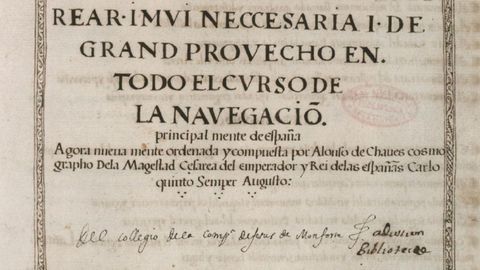 REAR·IMVI NECCESARIA I·DE
GRAND PROVECHO EN.
TODO EL CVRSO DE
LA NAVEGACIÕ.
principal mente de españa
Agora nueva mente ordenada y compuesta por Alonso de Chaues cosmo
grapho Dela Magestad Cesarea del emperador y Rei de las españas Carlo
quinto Semper Augusto:
del collegio de la Comp.ª de Jesus de Monforte